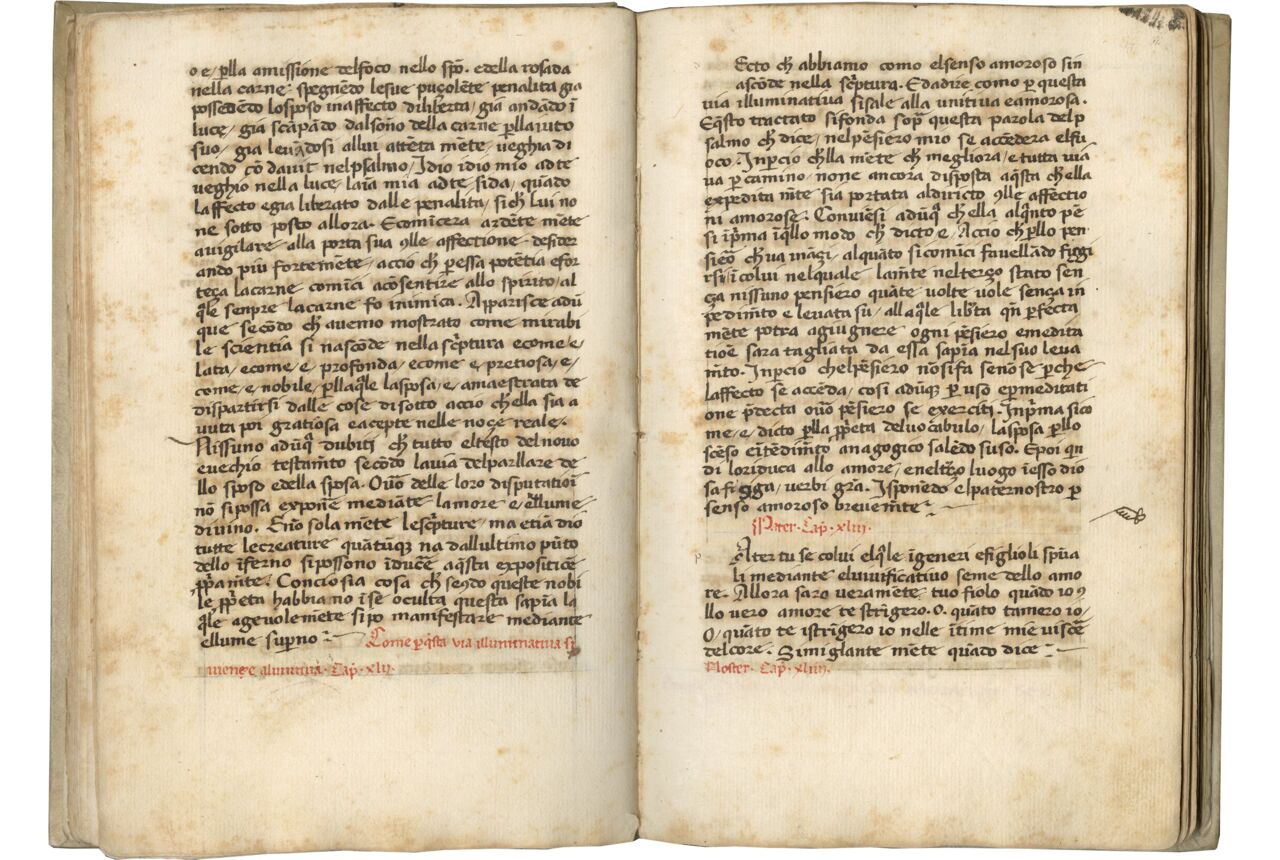 o e, p̱lla amissione delfoco nello sp̄o. edella rosada
nella carne: spegnēdo lesue puçolēte penalita gia
possedēdo losposo inaffecto diliberta, gia andādo ī
luce, gia scāpādo dalsōno della carne p̱llaiuto
suo, gia leuādosi allui attēta mēte, ueghia di
cendo cō dauit nelpsalmo, Idio idio mio ad te
ueghio nella luce, laīa mia adte, sida, quādo
laffecto egia liberato dalle penalita, sich̄ lui no
ne sotto posto allora. Ecomīcera ardēte mēte
auigilare alla porta sua q̄lle affectione desider
ando piu fortemēte, accio ch̄ p̱essa potētia efor
teça lacarne comīci acosentire allo spirito, al
q̄le senpre lacarne fo inimica. Apparisce adū
que secōdo ch̄ auemo mostrato come mirabi
le scientia si nascōde nella sc̄ptura ecome e,
lata, ecome, e, profonda, ecome e, pretiosa, e,
come, e, nobile, p̱llaq̄le lasposa, e, amaestrata de
dispartirsi dalle cose disotto accio ch̄ella sia a
uuta poi gratiosa eacepte nelle noçe reale.
Nissuno adūq̄ dubiti ch̄ tutto eltesto del nouo
euechio testam̄to secōdo lauia delparllare de
llo sposo edella sposa. Oūo delle loro disputatioī
nō sipossa exponē mediāte lamore e ellume
diuino. Enō sola mēte lesc̄pture, ma etiā dio
tutte lecreature quātūq̄ na dallultimo pūto
dello īferno sipossono īducē aq̄sta expositiōe
p̄p̄amte. Conciosia cosa ch̄ sēdo queste nobi
le p̄p̄eta habbia no īse oculta questa sapīa la
q̄le ageuolemēte sipo manifestare mediante
ellume sup̱no
Come p̱ q̄sta uia illuminatiua si
uenge alunitiua. Cap̄. xlij.
Ecto ch̄ abbiamo como elsenso amoroso sin
ascōde nella sc̄ptura. Edadire como p̱ questa
uia illuminatiua sisale alla unitiua eamorosa.
Eq̄sto tractato sifonda sop̄ questa parola delp
salmo ch̄ dice, nelpēsiero mio se accēdera elfu
oco. Inp̱cio ch̄lla mēte ch̄ megliora, e tutta uia
ua p̱ camino, none ancora disposta aq̄sta ch̄ ella
expedita m̄te sia portata aldiricto q̄lle affectio
ni amorose. Conuiēsi adūq̄ ch̄ ella alq̄nto pē
si īp̄ma īq̄llo modo ch̄ dicto e, Accio ch̄ p̱llo pen
siero ch̄ ua īnāçi, alquāto si comīci fauellādo figgi
rsi, ī colui nelquale lam̄te nelterço stato sen
ça nissuno pensiero quāte uolte uole sença in
pedim̄to e leuata su, allaq̄le lib̄ta q̄n p̱fecta
mēte potra agiugnere ogni pēsiero emedita
tiōe sara tagliata da essa sapīa nelsuo leua
m̄to. Inp̱cio chelpēsiero nosifa senōse p̱ che
laffecto se accēda, cosi adūq̄ p̱ uso ep̱meditati
one p̄decta oūo pēsiero se exerciti. Inp̄ma sico
me, e, dicto p̱lla p̄p̄eta deluocabulo, lasposa p̱llo
scēso eītēdim̄to anagogico salēdo suso. Epoi qn
di loriduca allo amore, eneltẕo luogo īesso dio
safigga, uerbi gr̄a. Isponēdo elpaternostro p̱
senso amoroso breuem̄te
Pater. Cap̄. xliii.
Ater tu se colui elq̄le īgeneri efiglioli sp̄ua
li mediante eluiuificatiuo seme dello amo
re. Allora saro ueramēte tuo fiolo quādo io q̄
llo uero amore te strīgero. O. quāto tamero io,
O, quāto te istrīgero io nelle ītime mie uiscē
delcore. Simiglante mēte quādo dice
Noster. Cap̄. xliiii.